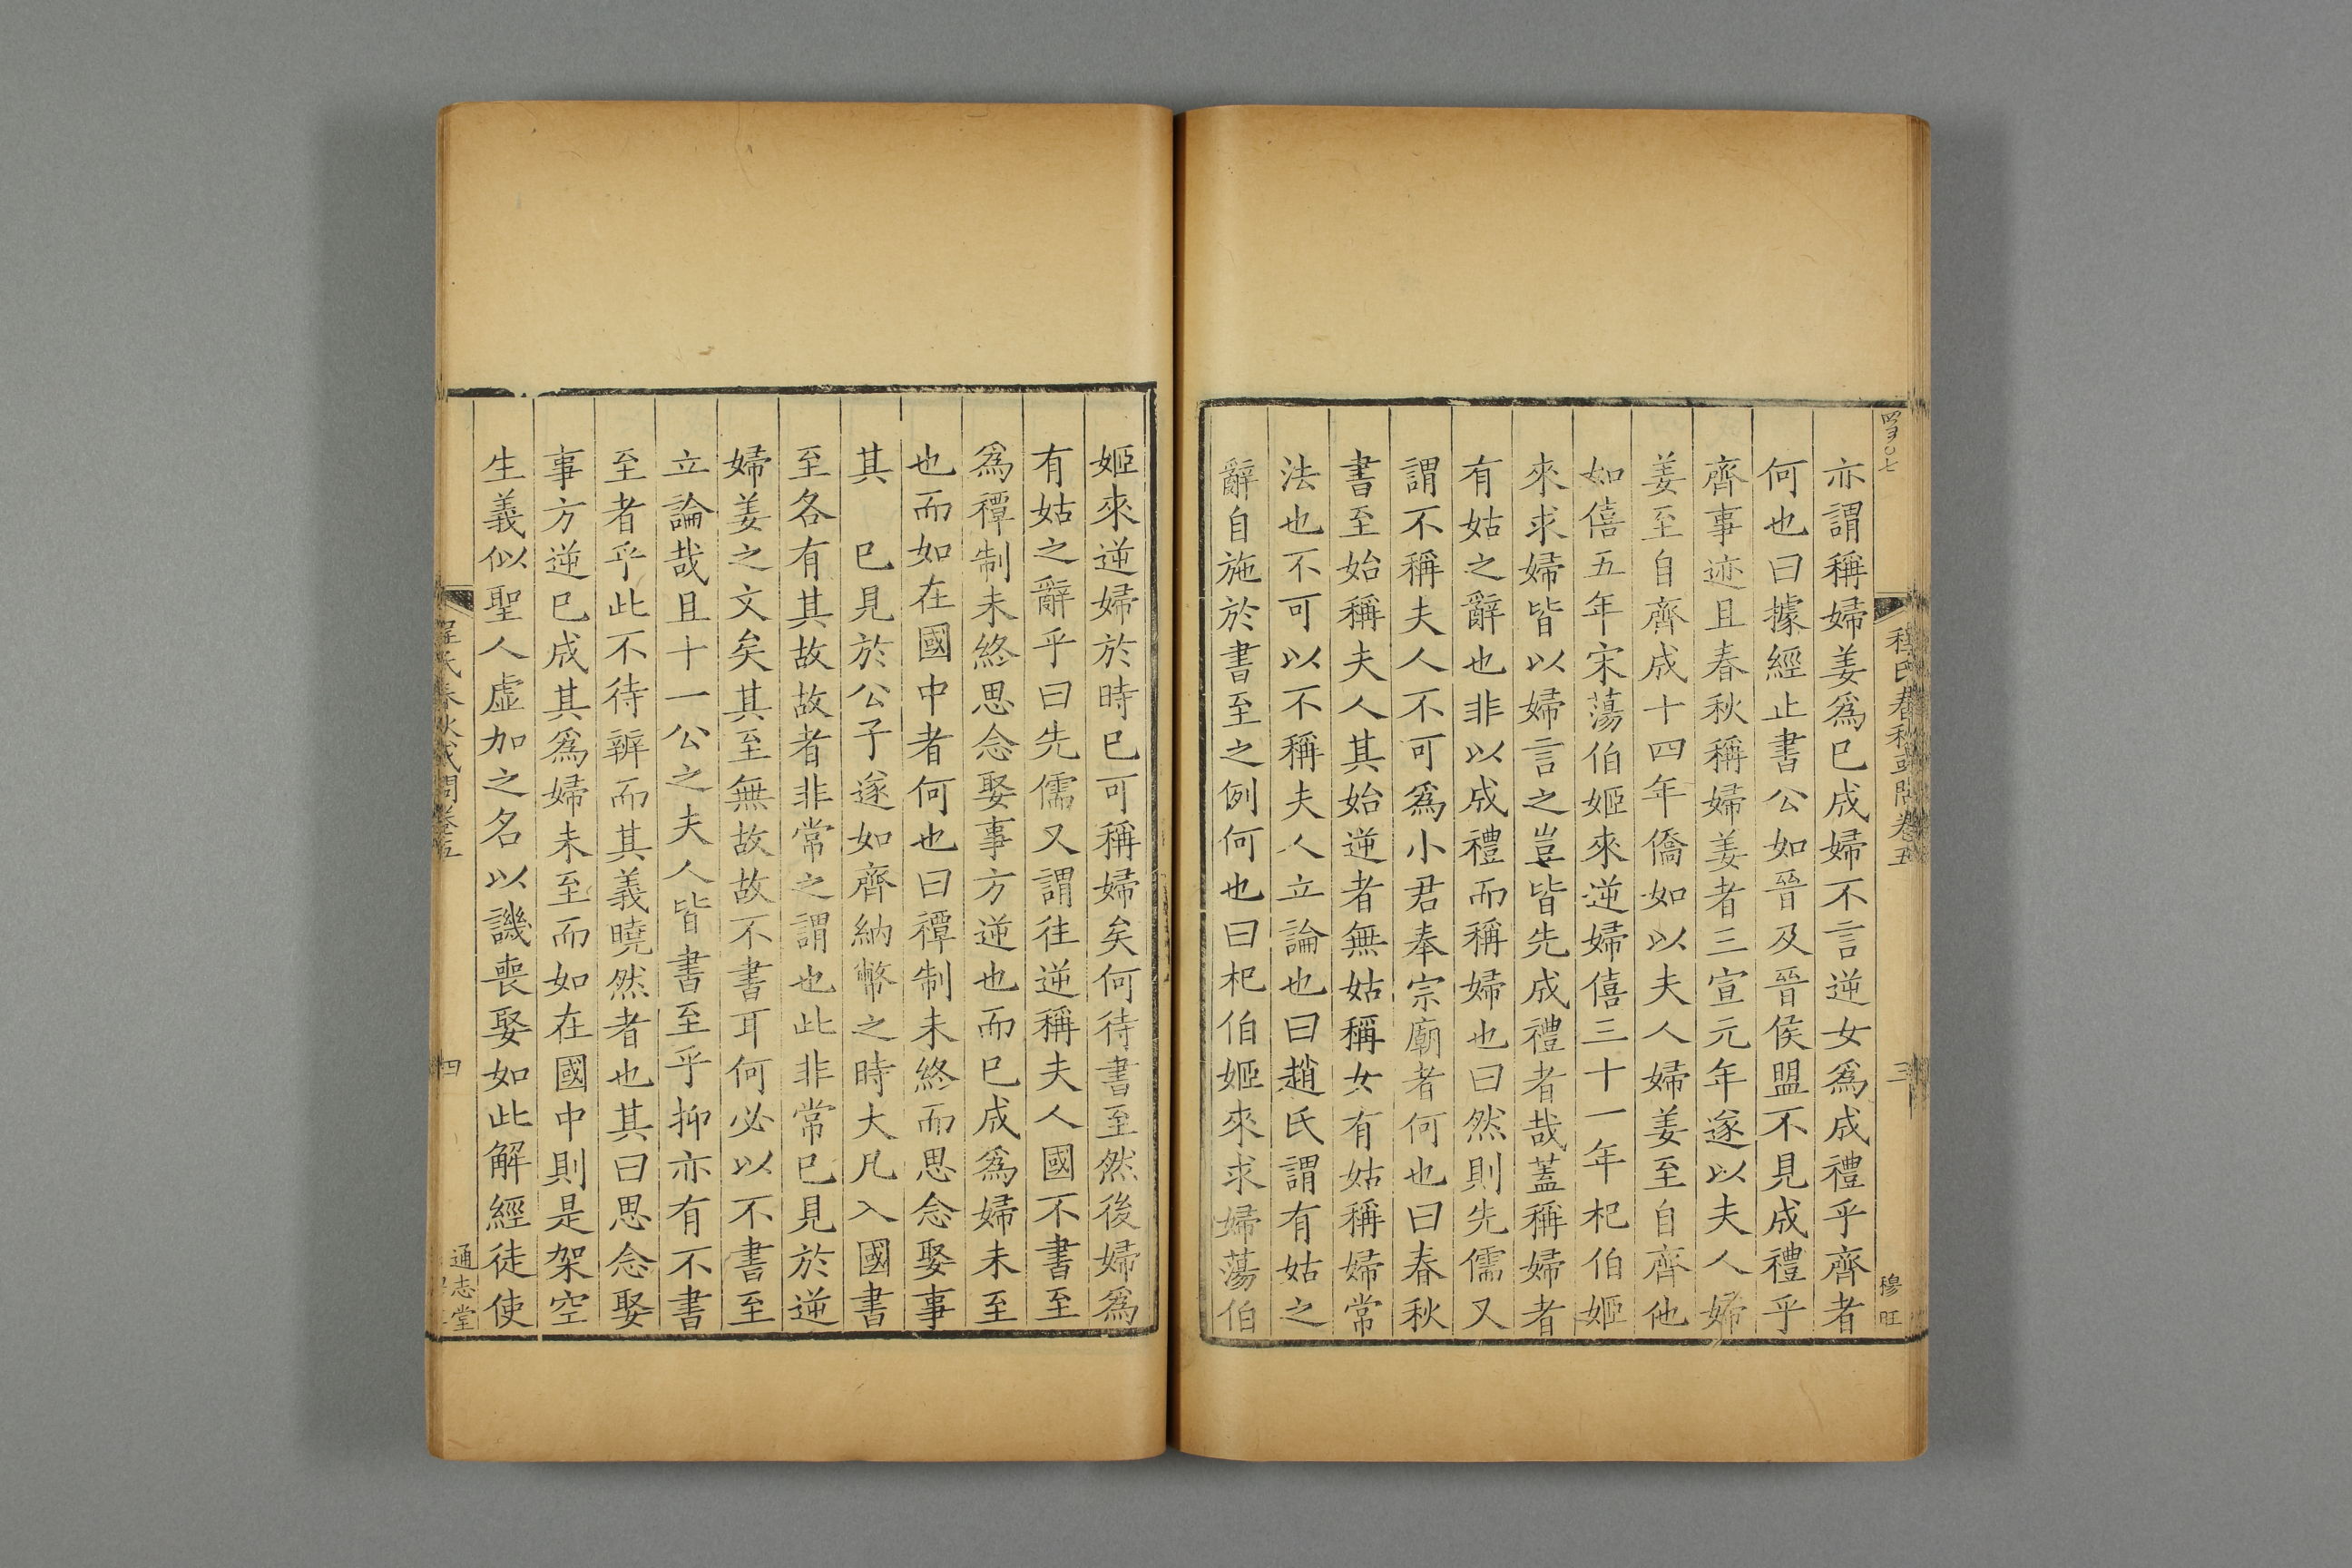 亦謂稱婦姜爲已成婦不言逆女爲成禮乎齊者
何也曰據經止書公如晉及晉侯盟不見成禮乎
齊事迹且春秋稱婦姜者三宣元年遂以夫人婦
姜至自齊成十四年僑如以夫人婦姜至自齊他
如僖五年宋蕩伯姬來逆婦僖三十一年杞伯姬
來求婦皆以婦言之豈皆先成禮者哉蓋稱婦者
有姑之辭也非以成禮而稱婦也曰然則先儒又
謂不稱夫人不可爲小君奉宗廟者何也曰春秋
書至始稱夫人其始逆者無姑稱女有姑稱婦常
法也不可以不稱夫人立論也曰趙氏謂有姑之
辭自施於書至之例何也曰杞伯姬來求婦蕩伯
程氏春秋或問卷五
三
穆旺
姬來逆婦於時已可稱婦矣何待書至然後婦爲
有姑之辭乎曰先儒又謂往逆稱夫人國不書至
爲禫制未終思念娶事方逆也而已成爲婦未至
也而如在國中者何也曰禫制未終而思念娶事
其 已見於公子遂如齊納幣之時大凡入國書
至各有其故故者非常之謂也此非常已見於逆
婦姜之文矣其至無故故不書耳何必以不書至
立論哉且十一公之夫人皆書至乎抑亦有不書
至者乎此不待辨而其義曉然者也其曰思念娶
事方逆已成其爲婦未至而如在國中則是架空
生義似聖人虛加之名以譏喪娶如此解經徒使
程氏春秋或問卷五
四
通志堂